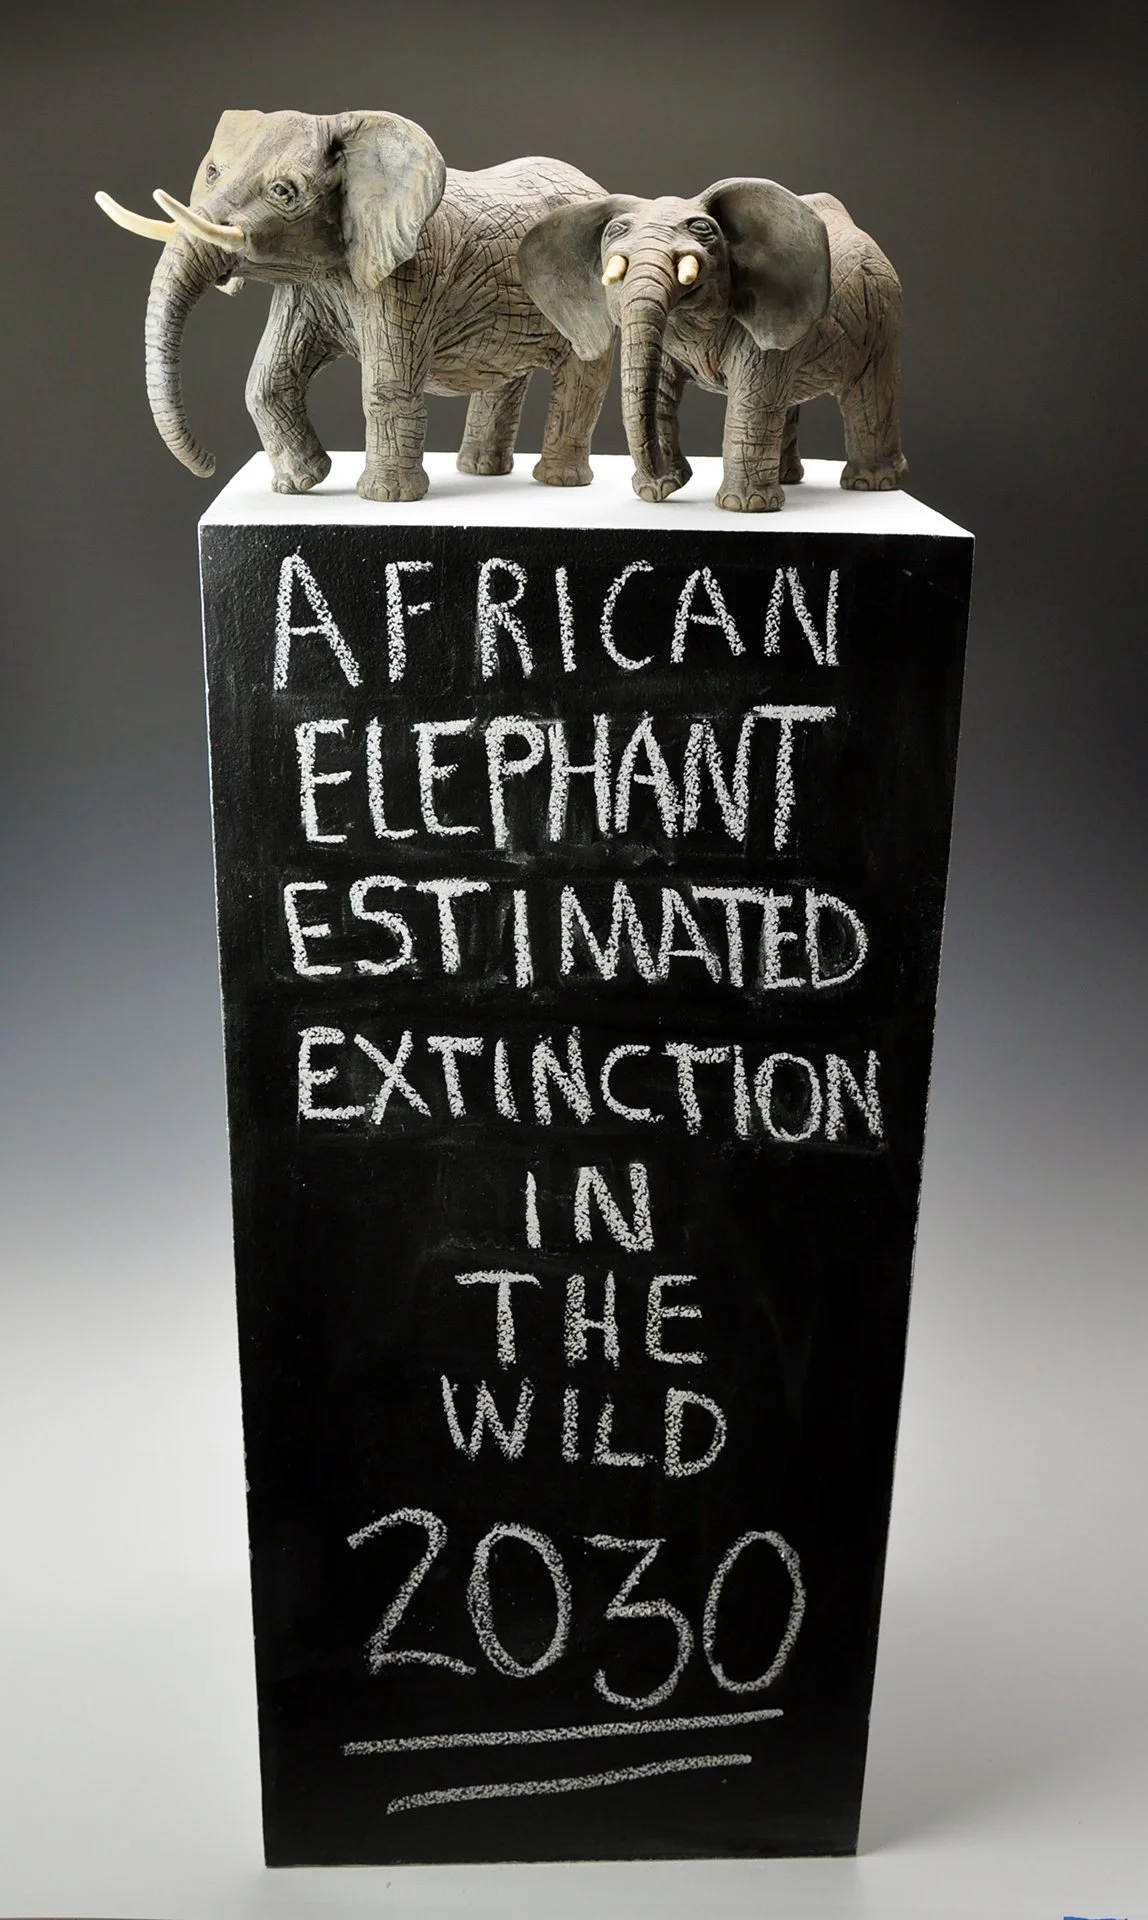 AFRICAN
ELEPHANT
ESTIMATED
EXTINCTION
IN
THE
WILD
2030